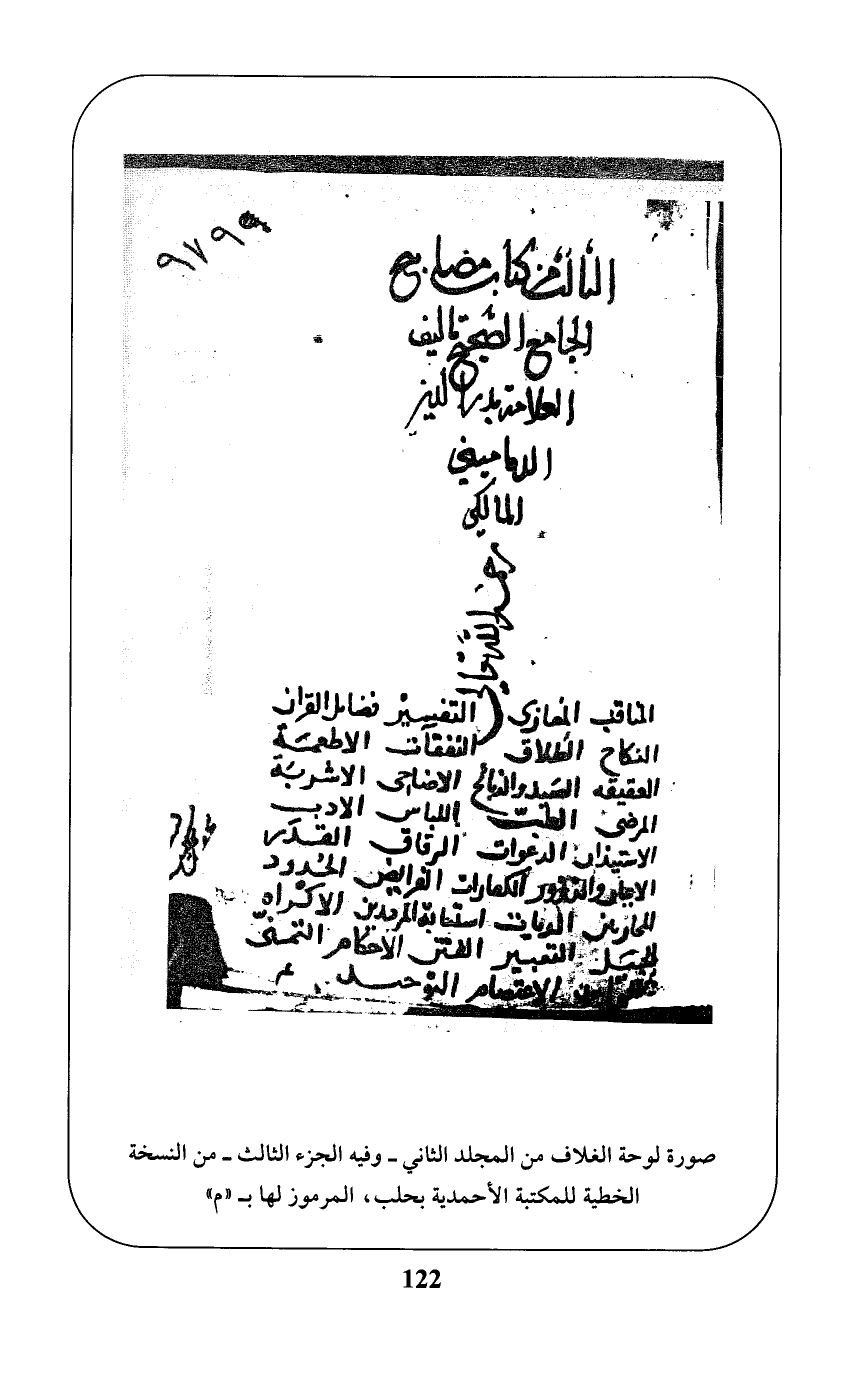 ٩٧٩٩
الثالث من كتاب مصابيح
الجامع الصحيح تاليف
العلامة بدر الدين
الدماميني
المالكي
رحمه الله تعالى
المناقب المغازى التفسير فضايل القران
النكاح الطلاق النفقات الاطعمة
العقيقه الصيد والذبائح الاضاحى الاشربة
المرضى الطب اللباس الادب
الاستيذان الدعوات الرقاق القدر
الايمان والنذور الكفارات الفرايض الحدود
المحاربين الديات استتابة المرتدين الاكراه
الحيل التعبير الفتن الاحكام التمنى
الاعتصام التوحيد
صورة لوحة الغلاف من المجلد الثاني ـ وفيه الجزء الثالث ـ من النسخة
الخطية للمكتبة الأحمدية بحلب، المرموز لها بـ «م»
122